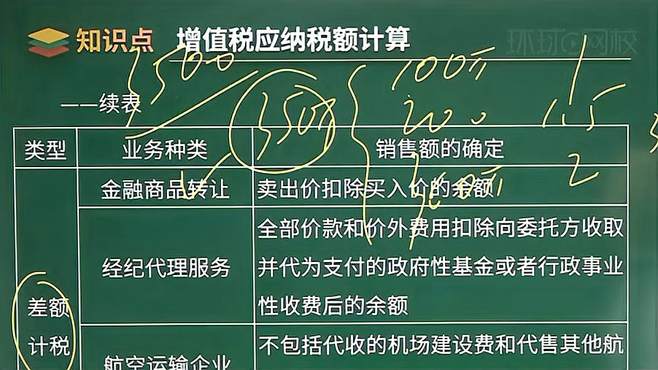 知识点 增值税应纳税额计算
环球网校
——续表
3500
350万
100万 1
200 1.5
300万 2
类型 业务种类 销售额的确定
金融商品转让 卖出价扣除买入价的余额
差额计税
经纪代理服务 全部价款和价外费用扣除向委托方收取
并代为支付的政府性基金或者行政事业
性收费后的余额
航空运输企业 不包括代收的机场建设费和代售其他航